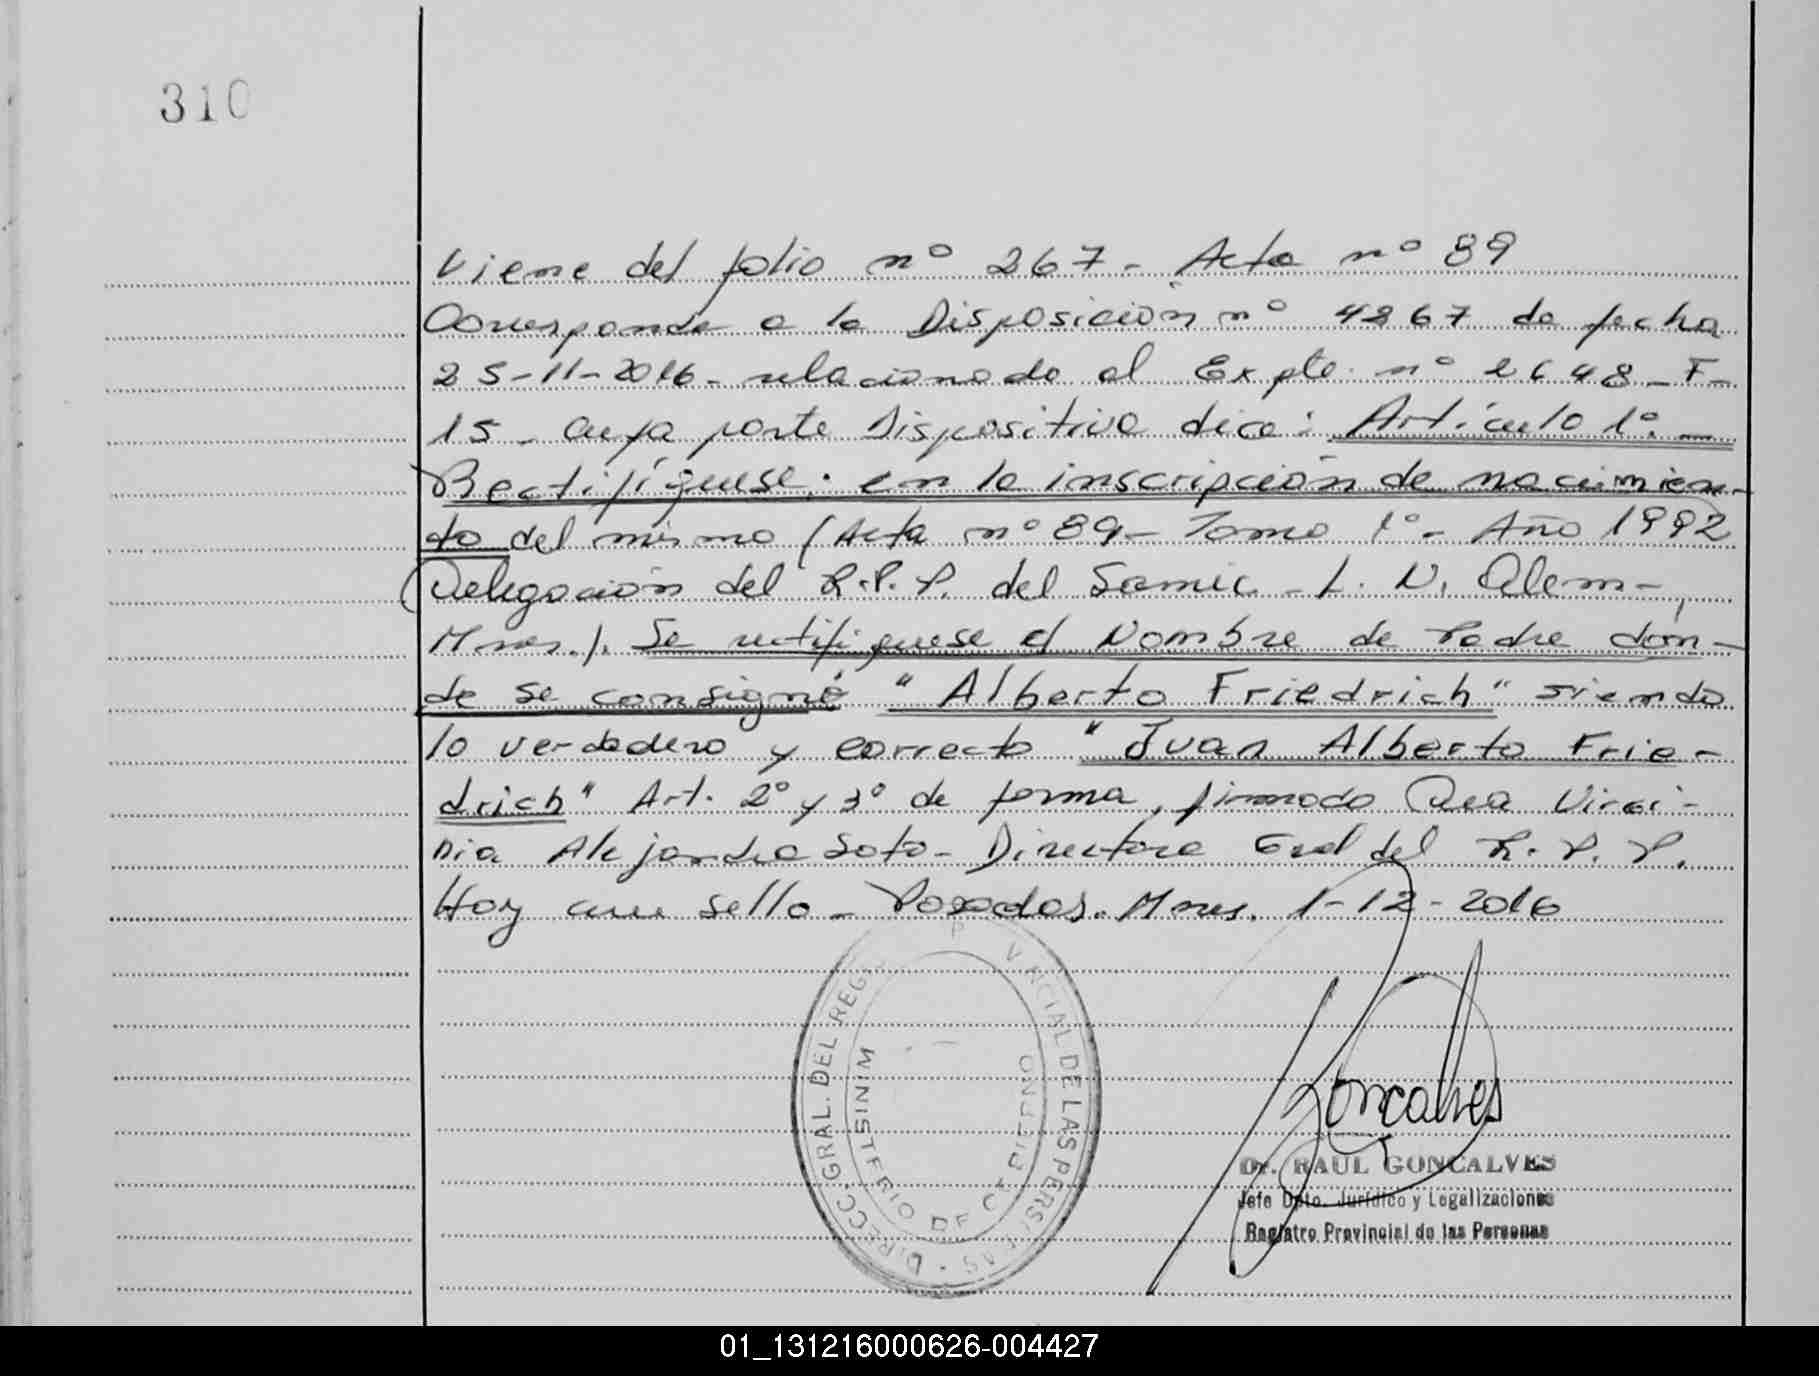 310
Viene del folio nº 267 - Acta nº 89
Corresponde a la Disposición nº 4867 de fecha
25-11-2016 - relacionado al Expte. nº 2648 - F -
15 - cuya parte Dispositiva dice: Artículo 1º. -
Rectifíquese: en la inscripción de nacimien-
to del mismo (Acta nº 89 - Tomo 1º - Año 1992
Delegación del R.P.P. del Samic - L. N. Alem -,
Mnes.). Se rectifiquese el Nombre de Padre don-
de se consignó "Alberto Friedrich" siendo
lo verdadero y correcto "Juan Alberto Frie-
drich" Art. 2º y 3º de forma, firmado Dra Virgi-
nia Alejandra Soto - Directora Gral del R. P. P.
Hay un sello - Posadas. Mnes. 1-12-2016
DIRECC. GRAL. DEL REG P VINCIAL DE LAS PERSONAS
MINISTERIO DE GOBIERNO
Goncalves
Dr. RAUL GONCALVES
Jefe Dpto. Jurídico y Legalizaciones
Registro Provincial de las Personas
01_131216000626-004427